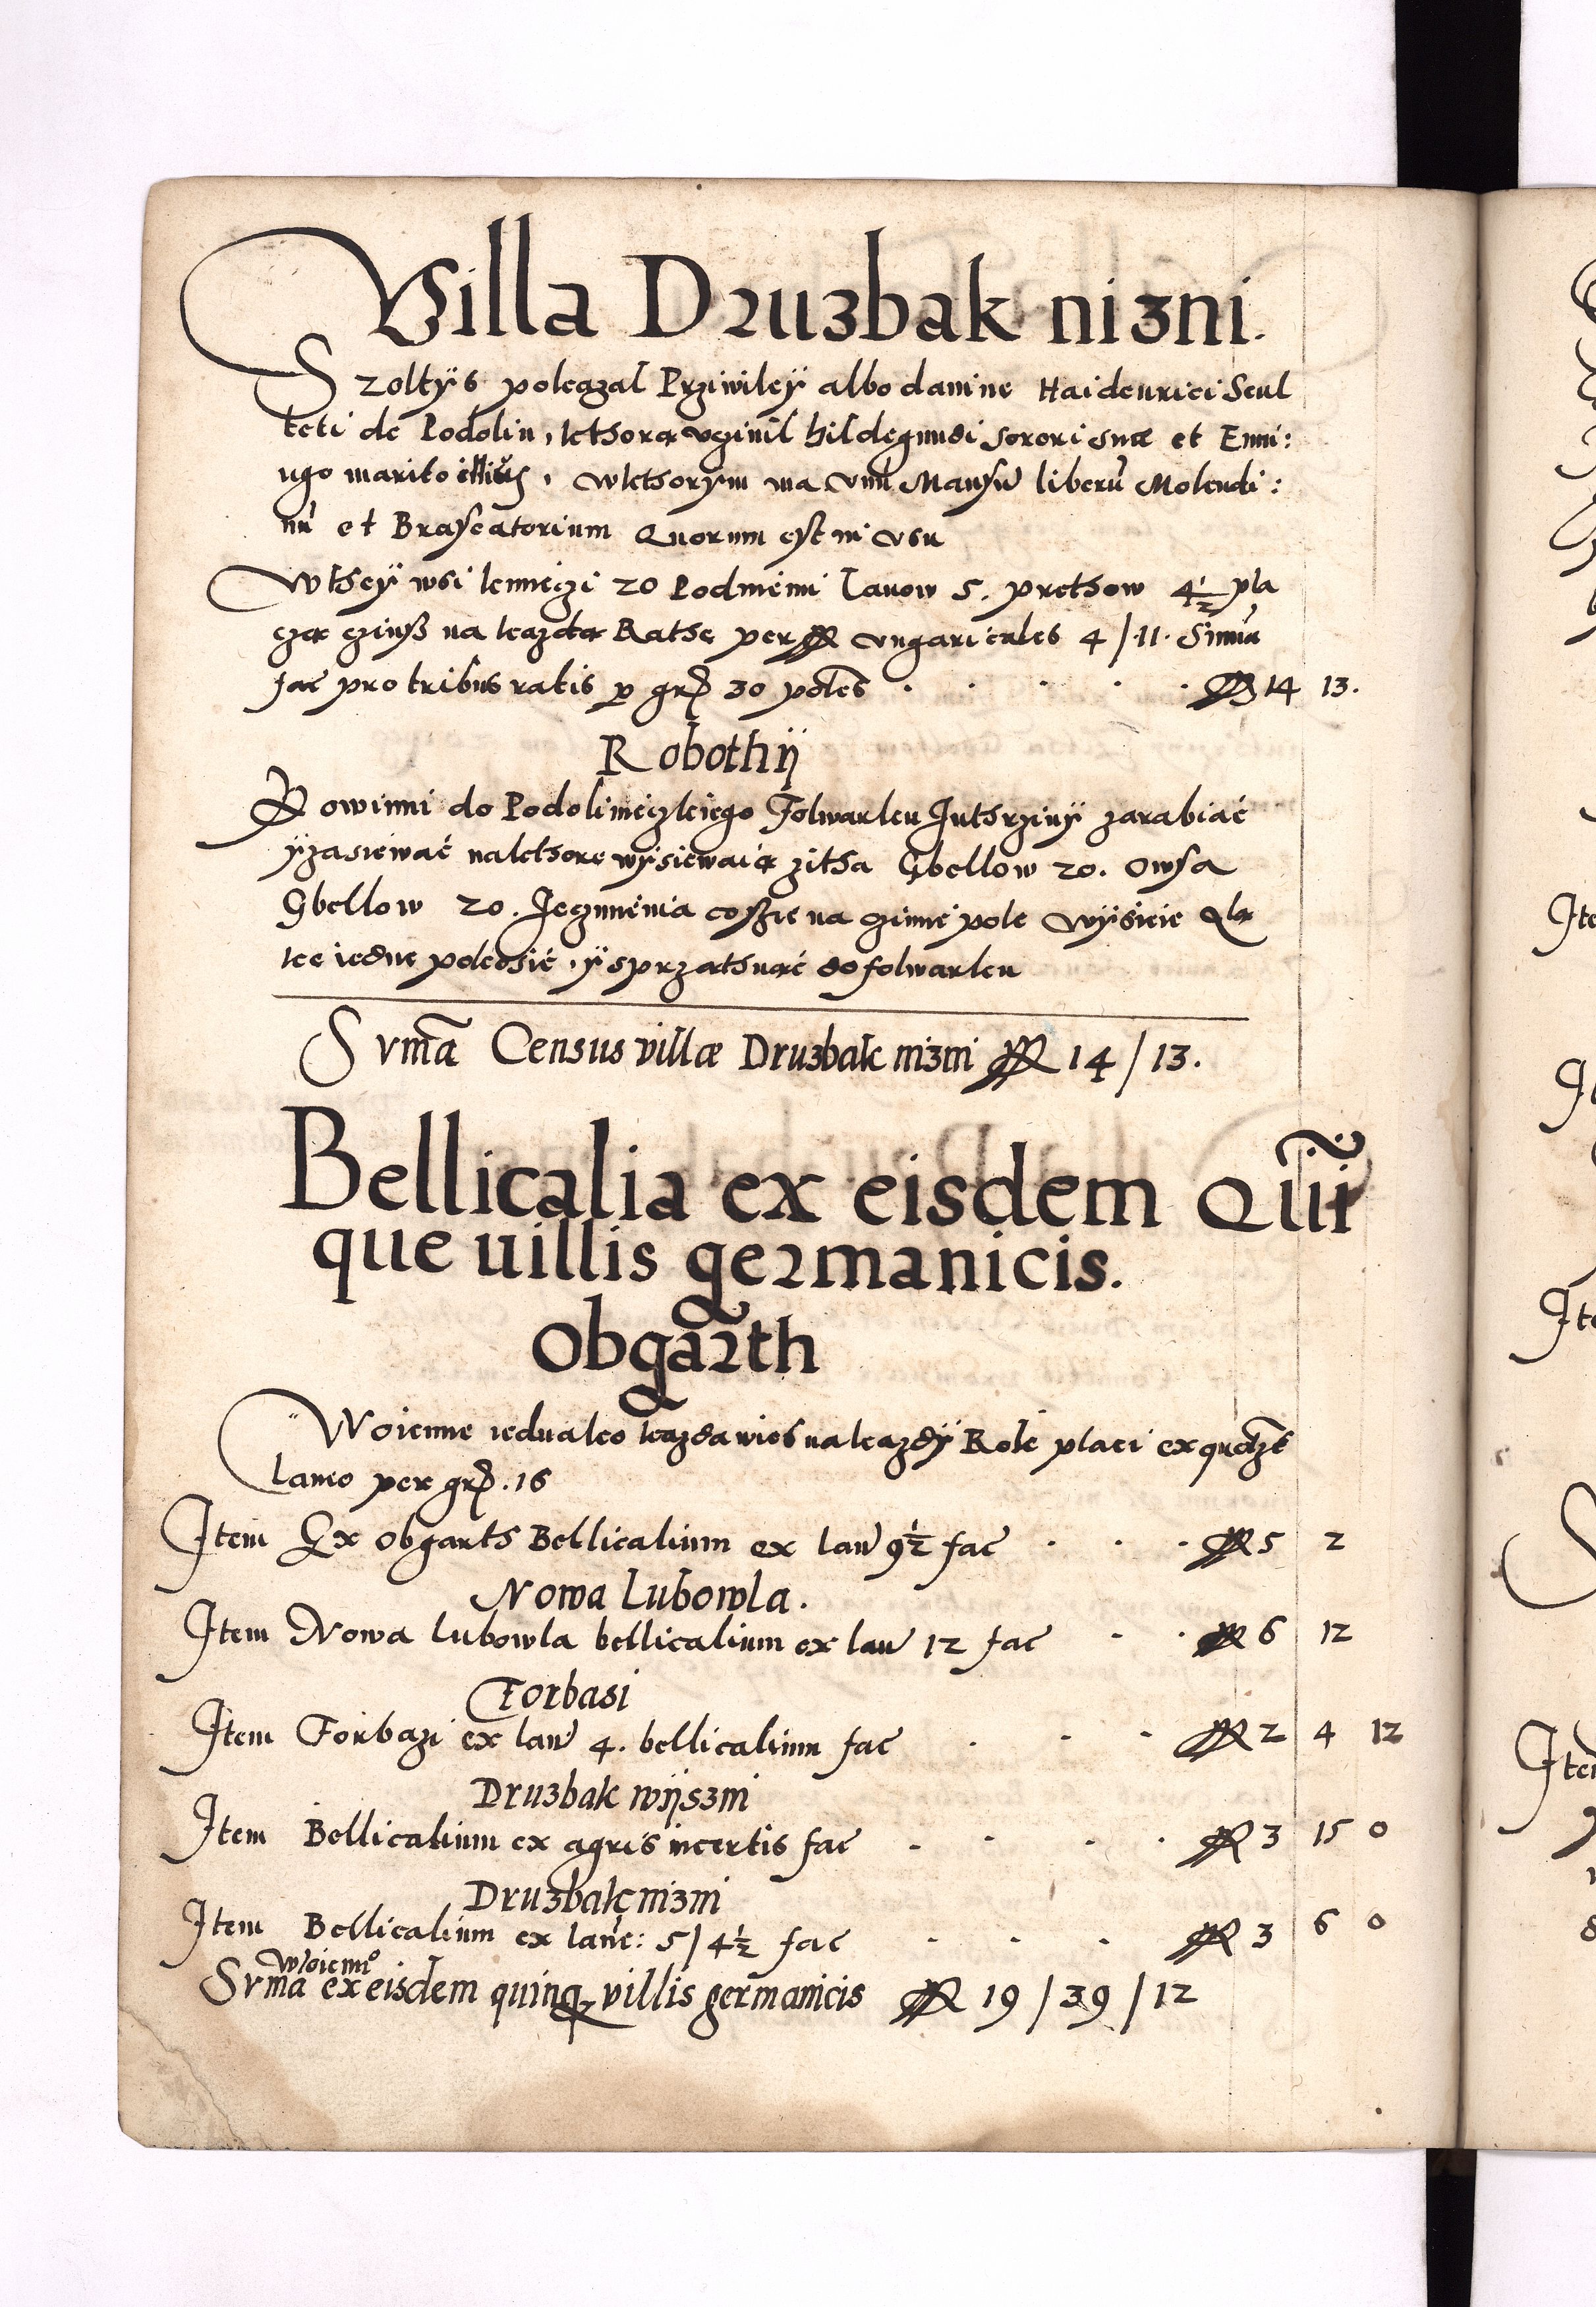 Villa Druzbak nizni.
Szoltÿs pokazal Prziwileÿ albo danine Haidenrici Scul
teti de Podolin, kthorą vczinil hildegundi sorori suæ et Enni:
ugo marito illius, w kthorym ma vnū Mansū liberū Molendi:
nū et Brascatorium Quorum est in vsu
W theÿ wsi kmieczi 20 Podmiemi lanow 5. prethow 4½ pla
czą czinsz na kazdą Rathę per ungaricales 4/11. Simia
fac pro tribus ratis p grd 30 poles . . . . . 14 13.
Robothij
Powinni do Podolinieczkiego Folwarku Juthrziny zarabiać
ÿ zasiewać na kthore wÿsiewaią zitha Gbellow 20. Owsa
Gbellow 20. Jeczmienia co sze na czinie pole wÿsieie Łą
kę iedne pokosić, ÿ sprzathnąć do folwarku
Svma Census villæ Druzbak nizni 14/13.
Bellicalia ex eisdem Quī
que uillis germanicis.
Obgarth
Woienne iednako kazda wies na kazdÿ Rok placi ex quolz
laneo per grd. 16
Item Ex obgarth Bellicalium ex lan 9½ fac . . . 5 2
Nowa Lubowla.
Item Nowa lubowla bellicalium ex lan 12 fac . . 6 12
Forbasi
Item Forbazi ex lan 4. bellicalium fac . . . 2 4 12
Druzbak wijszni
Item Bellicalium ex agris incertis fac . . . . 3 15 0
Druzbak nizni
Item Bellicalium ex lane: 5/4½ fac . . . 3 6 0
Woienne
Svma ex eisdem quinq villis germanicis 19/39/12